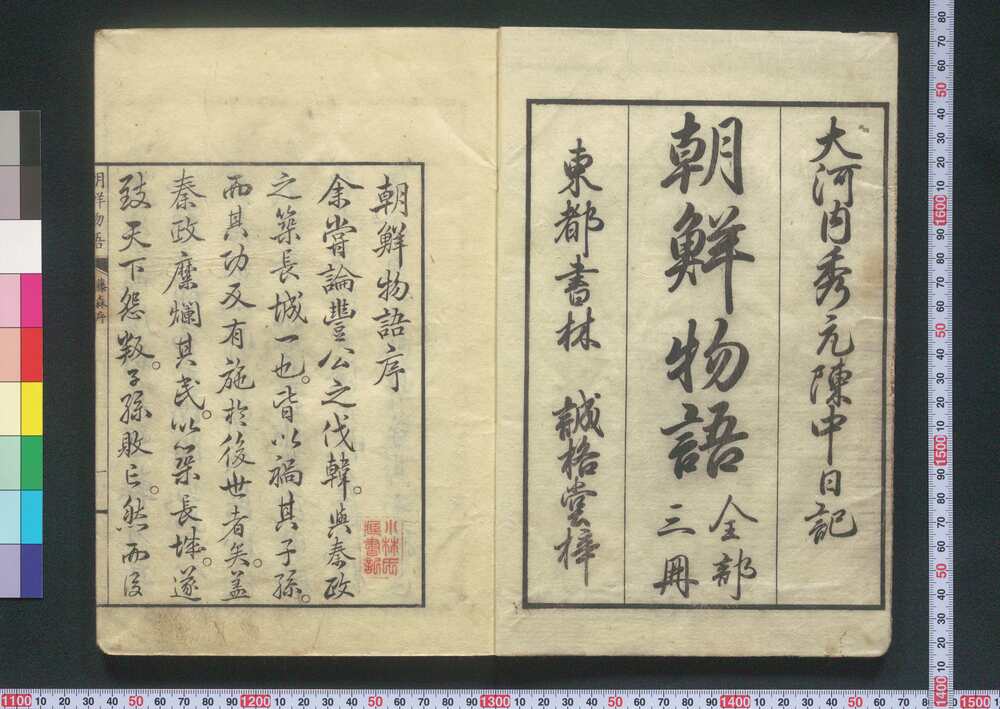 大河内秀元陳中日記
朝鮮物語 全部
三冊
東都書林 誠格堂梓
朝鮮物語序
余嘗論豊公之伐韓。與秦政
之築長城一也。皆以禍其子孫。
而其功又有施於後世者矣。盖
秦政糜爛其民。以築長城。遂
致天下怨叛。子孫敗亡。然而後
朝鮮物語 藤森序 一